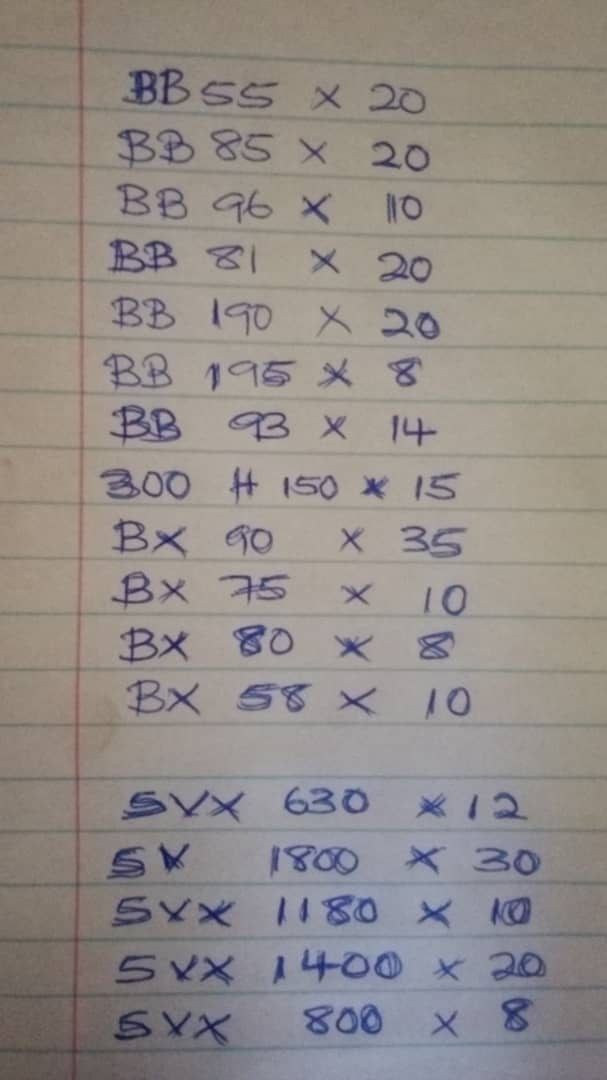 BB 55 x 20
BB 85 x 20
BB 96 x 10
BB 81 x 20
BB 190 x 20
BB 195 x 8
BB 93 x 14
300 H 150 x 15
BX 90 x 35
BX 75 x 10
BX 80 x 8
BX 58 x 10
5VX 630 x 12
5V 1800 x 30
5VX 1180 x 10
5VX 1400 x 20
5VX 800 x 8